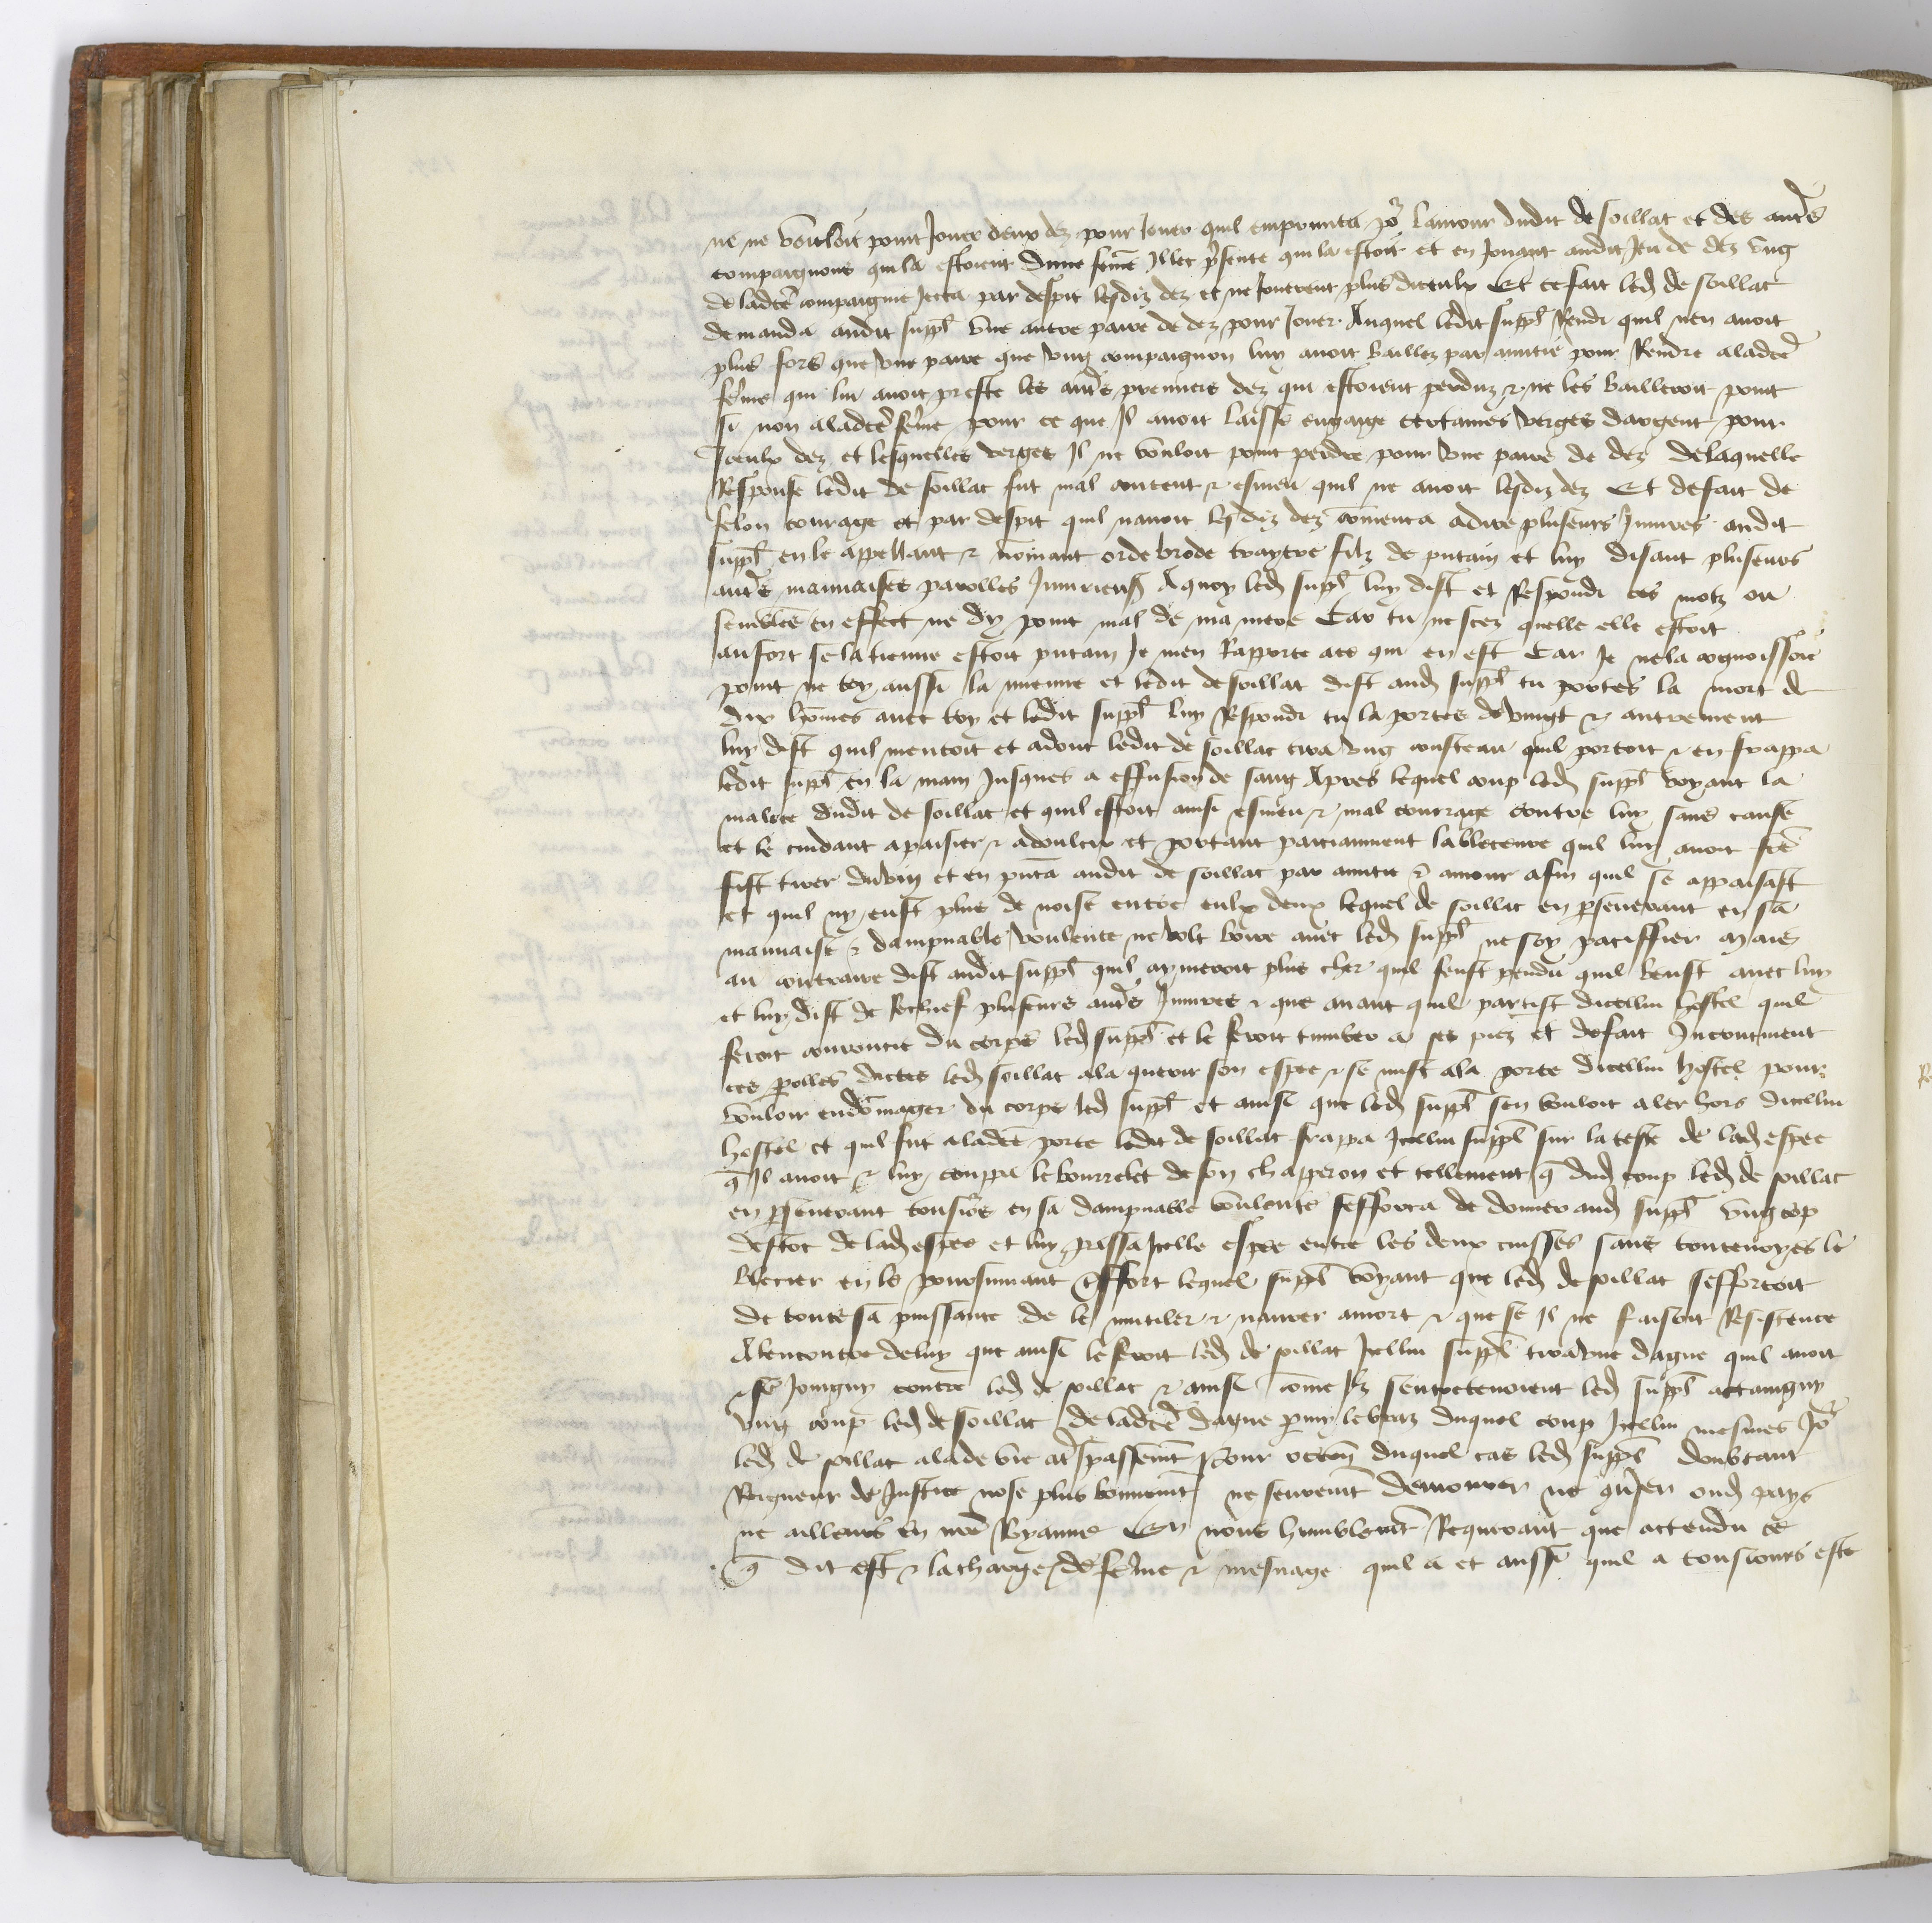 ne ne vouloit point Jouer deux dez pour Jouer quil emprunta po^r lamour dudit de soillat et des autres
compaignons qui la estoient dune feme Illec p̃sente qui la estoit et en Jouant audit Jeu de dez ung
de ladcẽ compaignie Jecta par despit lesdiz dez et ne Jouerent plus diceulx Et ce fait led de soillat
demanda audit suppl̃ une autre paire de dez pour Jouer Auquel ledit suppl̃ Rendi quil nen avoit
plus fors que une paire que ung compaignon luy avoit baillez par amitie pour Rendre a ladcẽ
feme qui lui avoit preste les autres premiers dez qui estoient perduz & ne les bailleroit point
si non a ladcẽ feme pour ce que Il avoit laisse engaige certaines verges dargent pour
Iceulx dez et lesquelles verges Il ne vouloit point perdre pour une paire de dez De laquelle
Response ledit de soillat fut mal content & esmeu quil ne avoit lesdiz dez Et de fait de
felon courage et par despit quil navoit lesdiz dez com̃enca a dire pluseurs Injures audit
suppl̃ en le appellant & nom̃ant orde brode traytre filz de putain et luy disant pluseurs
autres mauvaises parolles Injurieuses A quoy led suppl̃ luy dist et Respondi ces motz ou
semblẽ en effect ne dy point mal de ma mere Car tu ne scez quelle elle estoit
au fort se la tienne estoit putain Je men Rapporte a ce qui en est Car Je ne la cognoissoie
point ne toy aussi la mienne et ledit de soillat dist aud suppl̃ tu portes la mort de
dix hom̃es avec toy et ledit suppl̃ luy Respondi tu la portes de vingt & autrement
luy dist quil mentoit et adont ledit de soillat tira ung cousteau quil portoit & en frappa
ledit suppl̃ en la main Jusques a effusion de sang Apres lequel coup led suppl̃ voyant la
malice dudit de soillat et quil estoit ainsi esmeu & mal courage contre luy sans cause
et le cuidant apaisier & adoulcir et portant paciamment la bleceure quil luy avoit fcẽ
fist tirer du vin et en p̃nta audit de soillat par amitie & amour afin quil se appaisast
et quil ny eust plus de noise entre eulx deux lequel de soillat en p̱severant en sa
mauvaise & dampnable voulente ne volt boire avec led suppl̃ ne soy paciffier Mais
au contraire dist audit suppl̃ quil aymeroit plus cher quil feust pendu quil beust avec luy
et luy dist de Rechief pluseurs autres Injures & que avant quil partist dicellui hostel quil
feroit courroucie du corps led suppl̃ et le feroit tumber a ses piez et de fait Incontinent
ces p̱olles dictes led soillat ala querir son espee & se mist a la porte dicellui hostel pour
vouloir endom̃ager du corps led suppl̃ et ainsi que led suppl̃ sen vouloit aler hors dicellui
hostel et quil fut a ladcẽ porte ledit de soillat frappa Icellui suppl̃ sur la teste de lad espee
q̃ Il avoit & luy couppa le bourrelet de son chapperon et tellement q̃ dud coup led de soillat
en p̱severant tousio^rs en sa dampnable voulente sefforca de donner aud suppl̃ ung cop
destoc de lad espee et luy passa Icelle espee entre les deux cuisses sans toutevoyes le
blecier en le poursuivant Effort lequel suppl̃ voyant que led de soillat sefforcoit
de toute sa puissance de le mutiler & navrer a mort & que se Il ne faisoit Resistence
A lencontre de luy que ainsi le feroit led de soillat Icellui suppl̃ tira une dague quil avoit
& se Joingny contre led de soillat & ainsi com̃e Ilz sentretenoient led suppl̃ attaingny
ung coup led de soillat de ladcẽ dague p̱my le braz duquel coup Icellui mesmes Jo^r
led de soillat ala de vie a trespassem̃t Pour occõn duquel cas led suppl̃ doubtant
Rigueur de Justice nose plus bonnem̃t ne seurem̃t demourer ne conv̾ser oud pays
ne ailleurs en nr̃e Royaume En nous humblem̃t Requerant que attendu ce
q̃ dit est & la charge de feme & mesnage quil a et aussi quil a tousiours este